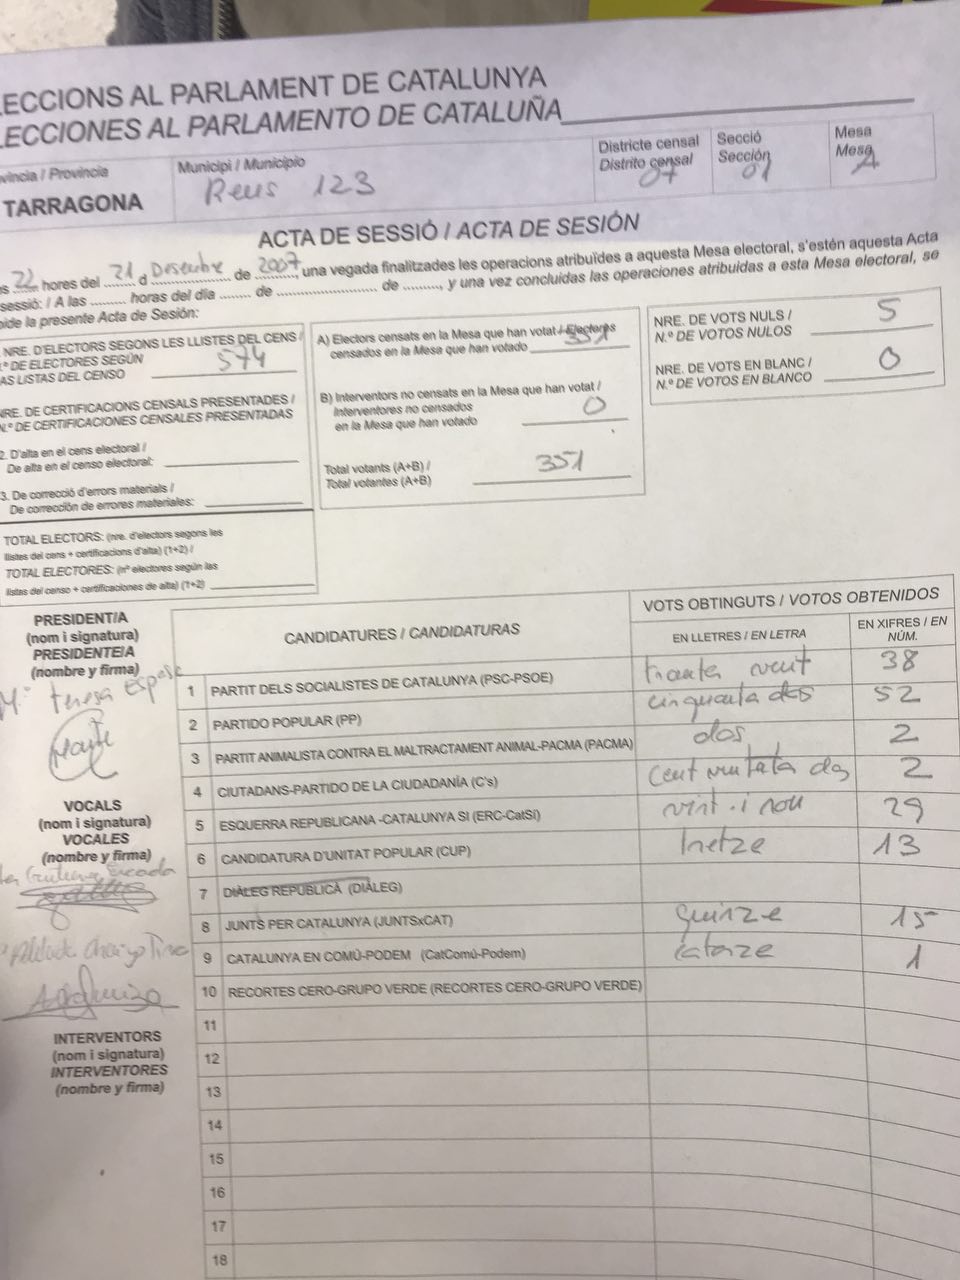 ECCIONS AL PARLAMENT DE CATALUNYA
ECCIONES AL PARLAMENTO DE CATALUÑA
víncia / Provincia
TARRAGONA
Municipi / Municipio
Reus 123
Districte censal
Distrito censal
07
Secció
Sección
01
Mesa
Mesa
A
ACTA DE SESSIÓ / ACTA DE SESIÓN
es 22 hores del 21 d Desembre de 2007 una vegada finalitzades les operacions atribuïdes a aquesta Mesa electoral, s'estén aquesta Acta
sessió: / A las ......... horas del día ........ de ......................... de ........., y una vez concluidas las operaciones atribuidas a esta Mesa electoral, se
ide la presente Acta de Sesión:
NRE. D'ELECTORS SEGONS LES LLISTES DEL CENS /
º DE ELECTORES SEGÚN
AS LISTAS DEL CENSO 574
NRE. DE CERTIFICACIONS CENSALS PRESENTADES /
N.º DE CERTIFICACIONES CENSALES PRESENTADAS
2. D'alta en el cens electoral /
De alta en el censo electoral:
3. De correcció d'errors materials /
De corrección de errores materiales:
TOTAL ELECTORS: (nre. d'electors segons les
llistes del cens + certificacions d'alta) (1+2) /
TOTAL ELECTORES: (nº electores según las
listas del censo + certificaciones de alta) (1+2)
A) Electors censats en la Mesa que han votat / Electores
censados en la Mesa que han votado 351
B) Interventors no censats en la Mesa que han votat /
Interventores no censados
en la Mesa que han votado 0
Total votants (A+B) /
Total votantes (A+B) 351
NRE. DE VOTS NULS /
N.º DE VOTOS NULOS 5
NRE. DE VOTS EN BLANC /
N.º DE VOTOS EN BLANCO 0
PRESIDENT/A
(nom i signatura)
PRESIDENTE/A
(nombre y firma)
Mª Teresa
VOCALS
(nom i signatura)
VOCALES
(nombre y firma)
INTERVENTORS
(nom i signatura)
INTERVENTORES
(nombre y firma)
CANDIDATURES / CANDIDATURAS
VOTS OBTINGUTS / VOTOS OBTENIDOS
EN LLETRES / EN LETRA
EN XIFRES / EN
NÚM.
1 PARTIT DELS SOCIALISTES DE CATALUNYA (PSC-PSOE) 38
2 PARTIDO POPULAR (PP) cinquanta dos 52
3 PARTIT ANIMALISTA CONTRA EL MALTRACTAMENT ANIMAL-PACMA (PACMA) dos 2
4 CIUTADANS-PARTIDO DE LA CIUDADANÍA (C's) cent dos 2
5 ESQUERRA REPUBLICANA -CATALUNYA SI (ERC-CatSí) vint i nou 29
6 CANDIDATURA D'UNITAT POPULAR (CUP) tretze 13
7 DIÀLEG REPUBLICÀ (DIÀLEG)
8 JUNTS PER CATALUNYA (JUNTSxCAT) quinze 15
9 CATALUNYA EN COMÚ-PODEM (CatComú-Podem) catorze 1
10 RECORTES CERO-GRUPO VERDE (RECORTES CERO-GRUPO VERDE)
11
12
13
14
15
16
17
18